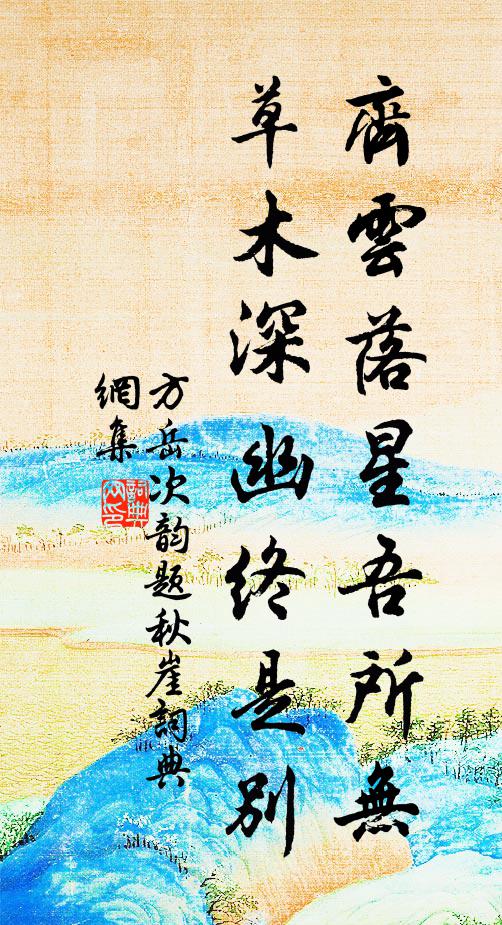 齊雲落星吾所無
草木深幽終是別
方岳次韵題秋崖詞典
網集
詞典